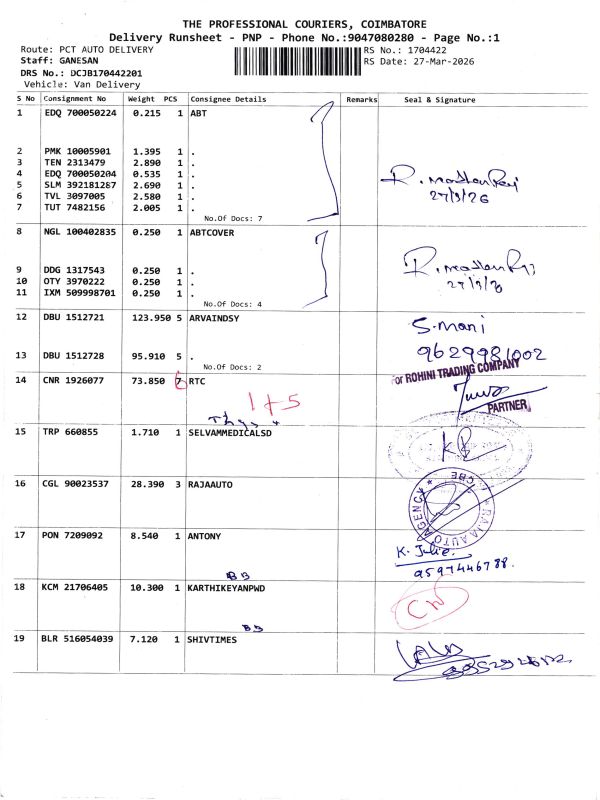 THE PROFESSIONAL COURIERS, COIMBATORE
Delivery Runsheet - PNP - Phone No.:9047080280 - Page No.:1
Route: PCT AUTO DELIVERY
RS No.: 1704422
Staff: GANESAN
RS Date: 27-Mar-2026
DRS No.: DCJB170442201
Vehicle: Van Delivery
S No Consignment No Weight PCS Consignee Details Remarks Seal & Signature
1 EDQ 700050224 0.215 1 ABT
2 PMK 10005901 1.395 1 .
3 TEN 2313479 2.890 1 .
4 EDQ 700050204 0.535 1 .
5 SLM 392181287 2.690 1 .
6 TVL 3097005 2.580 1 .
7 TUT 7482156 2.005 1 .
27/3/26
No.Of Docs: 7
8 NGL 100402835 0.250 1 ABTCOVER
9 DDG 1317543 0.250 1 .
10 OTY 3970222 0.250 1 .
11 IXM 509998701 0.250 1 .
No.Of Docs: 4
12 DBU 1512721 123.950 5 ARVAINDSY
S.mani
9629981002
13 DBU 1512728 95.910 5 .
No.Of Docs: 2
For ROHINI TRADING COMPANY
14 CNR 1926077 73.850 7 RTC
1+5
PARTNER
15 TRP 660855 1.710 1 SELVAMMEDICALSD
16 CGL 90023537 28.390 3 RAJAAUTO
RAJA AUTO AGENCY CBE
17 PON 7209092 8.540 1 ANTONY
K. Julie.
9597446788.
BB
18 KCM 21706405 10.300 1 KARTHIKEYANPWD
BB
19 BLR 516054039 7.120 1 SHIVTIMES